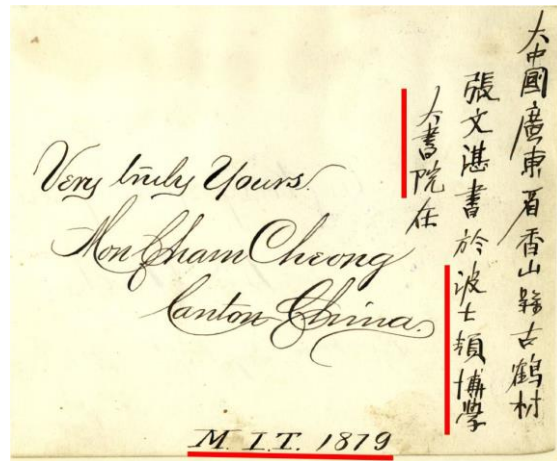 大中國廣東省香山縣古鶴村
張文湛書於波士頓博學
大書院在
Very truly Yours
Mon Cham Cheong
Canton China.
M. I. T. 1879